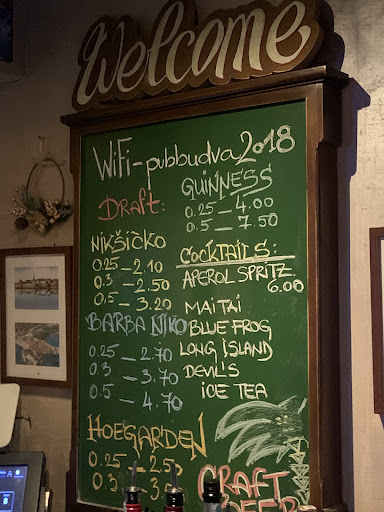 Welcome
WiFi-pubbudva2018
Draft:
NIKŠIĆKO
0.25 — 2.10
0.3 — 2.50
0.5 — 3.20
BARBA NIKO
0.25 — 2.70
0.3 — 3.70
0.5 — 4.70
HOEGARDEN
0.25 — 2.50
0.3 —
GUINNESS
0.25 — 4.00
0.5 — 7.50
COCKTAILS:
APEROL SPRITZ
6.00
MAI TAI
BLUE FROG
LONG ISLAND
DEVIL'S
ICE TEA
CRAFT
BEER